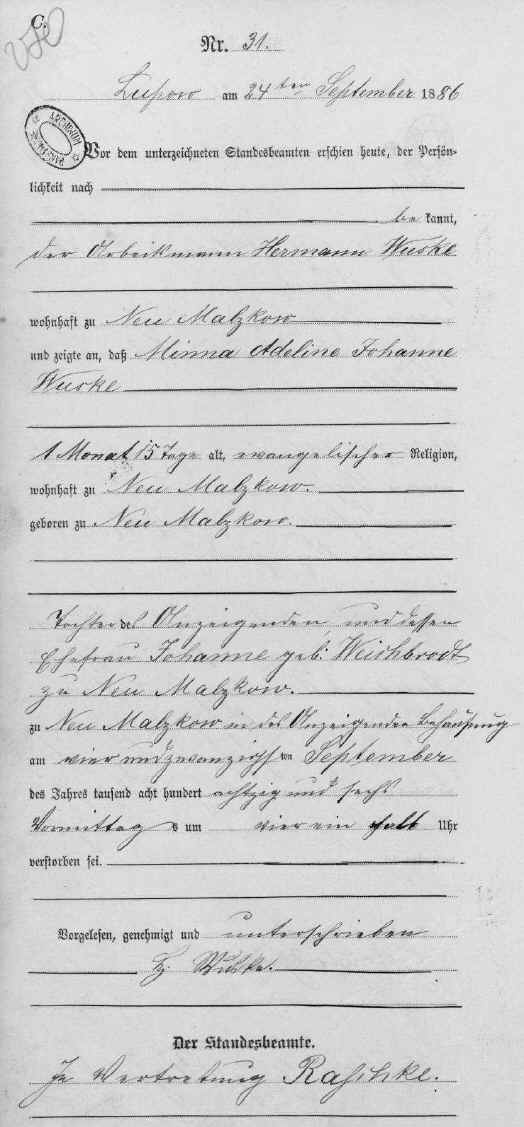 C.
Nr. 31.
Lupow am 24ten September 1886
ARCHIWUM
Vor dem unterzeichneten Standesbeamten erschien heute, der Persön-
lichkeit nach
bekannt,
der Arbeitmann Hermann Wuske
wohnhaft zu Neu Malzkow
und zeigte an, daß Minna Adeline Johanne
Wuske
1 Monat 15 Tage alt, evangelischer Religion,
wohnhaft zu Neu Malzkow.
geboren zu Neu Malzkow.
Tochter des Anzeigenden und dessen
Ehefrau Johanne geb. Weichbrodt
zu Neu Malzkow.
zu Neu Malzkow in des Anzeigenden Behausung
am vier und zwanzigsten September
des Jahres tausend acht hundert achtzig und sechs
Vormittags um vier ein halb Uhr
verstorben sei.
Vorgelesen, genehmigt und unterschrieben
Wuske.
Der Standesbeamte.
In Vertretung Raschke.